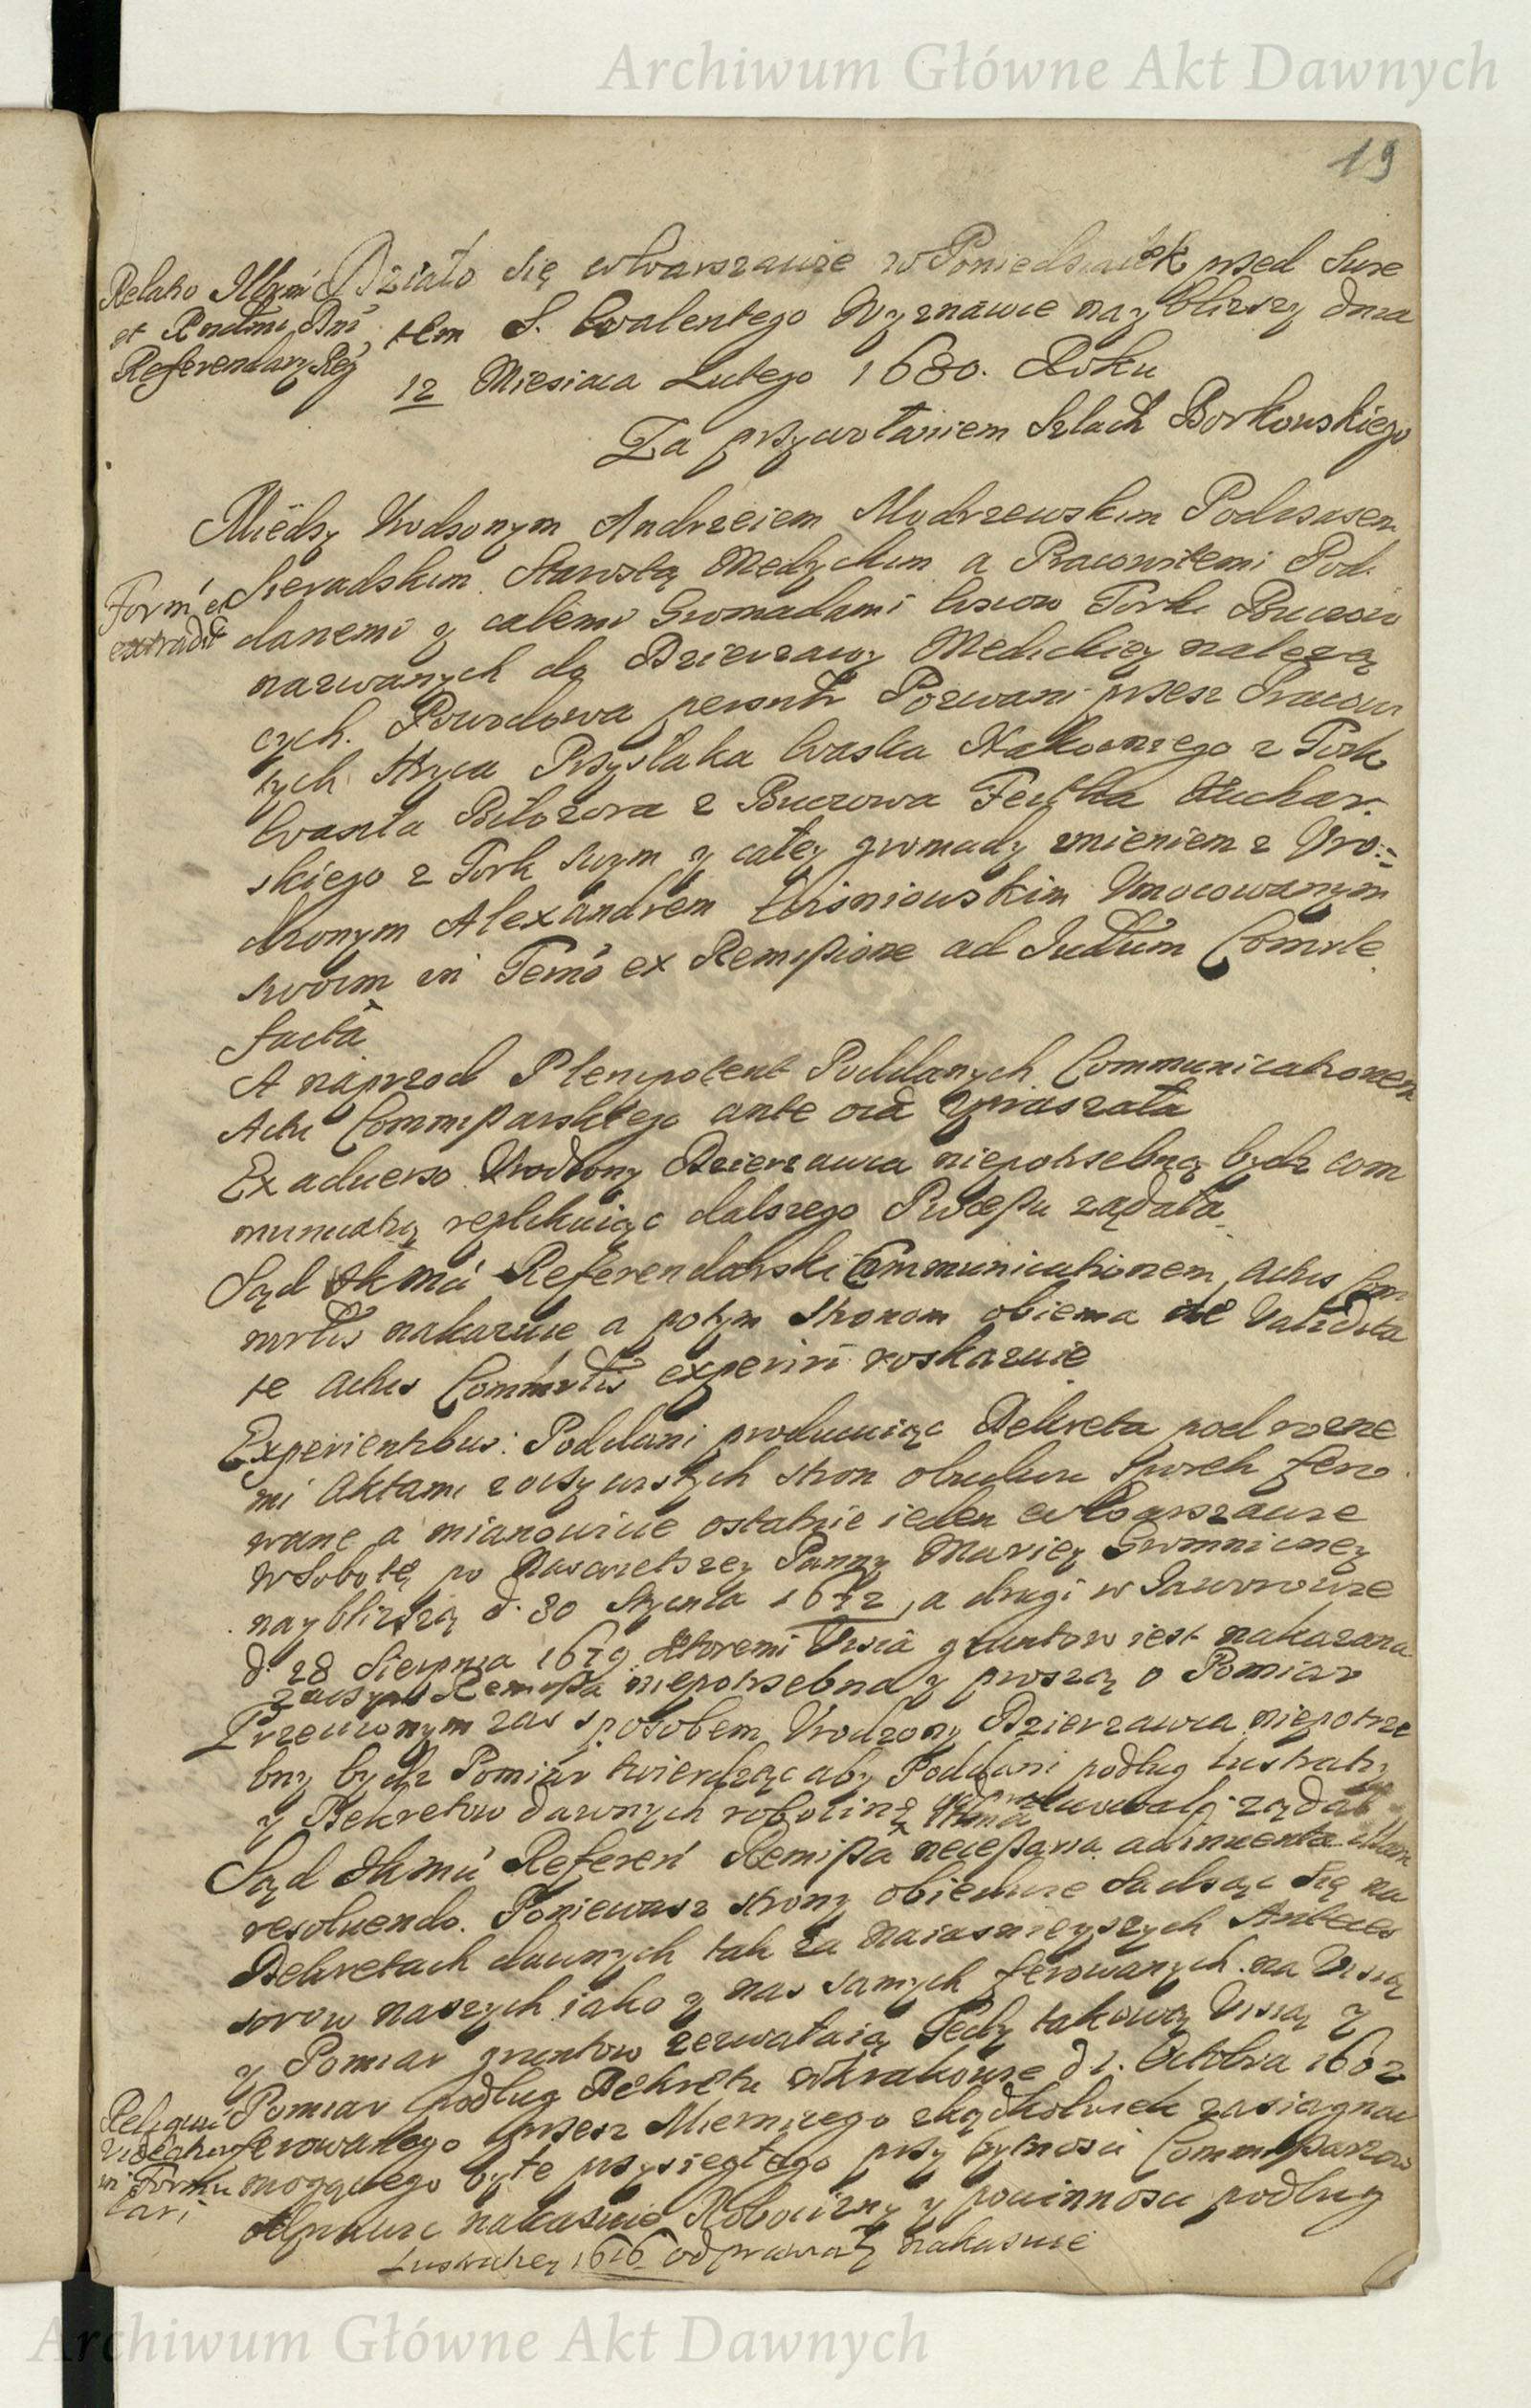 Archiwum Główne Akt Dawnych
19
Relatio Illmi
et Rndmi Dni
Referendarij Rég
Działo się wWarszawie w Poniedziałek przed Świe
tem S. Walentego Wyznawce nayblizszy dnia
12 Miesiaca Lutego 1680. Roku
Za przywołaniem Szlach Borkowskiego
Między Urodzonym Andrzeiem Modrzewskim Podczaszem
Sieradskim Starostą Medyckim a Pracowitemi Pod
Form et
extradit
danemi y całemi Gromadami wsiow Tork Bucow
nazwanych do Dzierzawy Medickiey nalezą
cych. Powodowa Pozwani przesz Pracow
tych Hryca Przyslaka Waska Nakoniego z Tork
Wasila Bilozora z Bucowa Fedka Kuchar
skiego z Tork swym y całey gromady imieniem z Uro=
dzonym Alexandrem Wisniowskim Umocowanym
swoim in Termo ex Remissione ad Judium Commle
facta
A naprzod Plenipotent Poddanych Communicationem
Actu Commissarskiego ante oia upraszała
Ex aduerso Urodzony Dzierzawca niepotrzebną bydz com
municatią replikuiąc dalszego Processu ządała
Sąd JKMci Referendarski Communicationem Actus Com
mrtis nakazuie a potym stronom obiema de Validita
te Actus Commrtis experiri roskazuie
Experientibus: Poddani producuiąc Dekreta pod rozne
mi Aktami z oczywistych stron obudwu sporek fero
wane a mianowicie ostatnie ieden wWarszawie
wSobotę po Naswietszey Panny Mariey Gromniczney
nayblizszą d. 30 Stycznia 1672, a drugi w Jaworowie
d. 28 Sierpnia 1679. ktoremi Visia gruntow iest nakazana
zaczym Remissa niepotrzebna y proszą o Pomiar
Przeciwnym zas sposobem Urodzony Dzierzawca niepotrze
bny bydz Pomiar twierdząc aby Poddani podług Lustratij
y Dekretow dawnych robociznę ządał
Sąd JKMci Referen Remissa necessaria adinuenta
resoluendo. Poniewasz strony obiedwie sadząc się na
Dekretach dawnych tak za Naiasnieyszych Anteces
sorow naszych iako y nas samych ferowanych na Visią
y Pomiar gruntow zezwalaią Tedy takową Visią y
Pomiar podług Dekretu wKrakowie d 1. Octobra 1602
Reliqua
videantur
in Formu
lari
ferowanego przesz Mierniczego zkądkolwiek zasiągnąc
mogącego byle przysięgłego przy bytnosci Commissarzow
nakazuie Robocizny y powinnosci podług
Lustratiey 1616 odprawiać nakazuie
Archiwum Główne Akt Dawnych